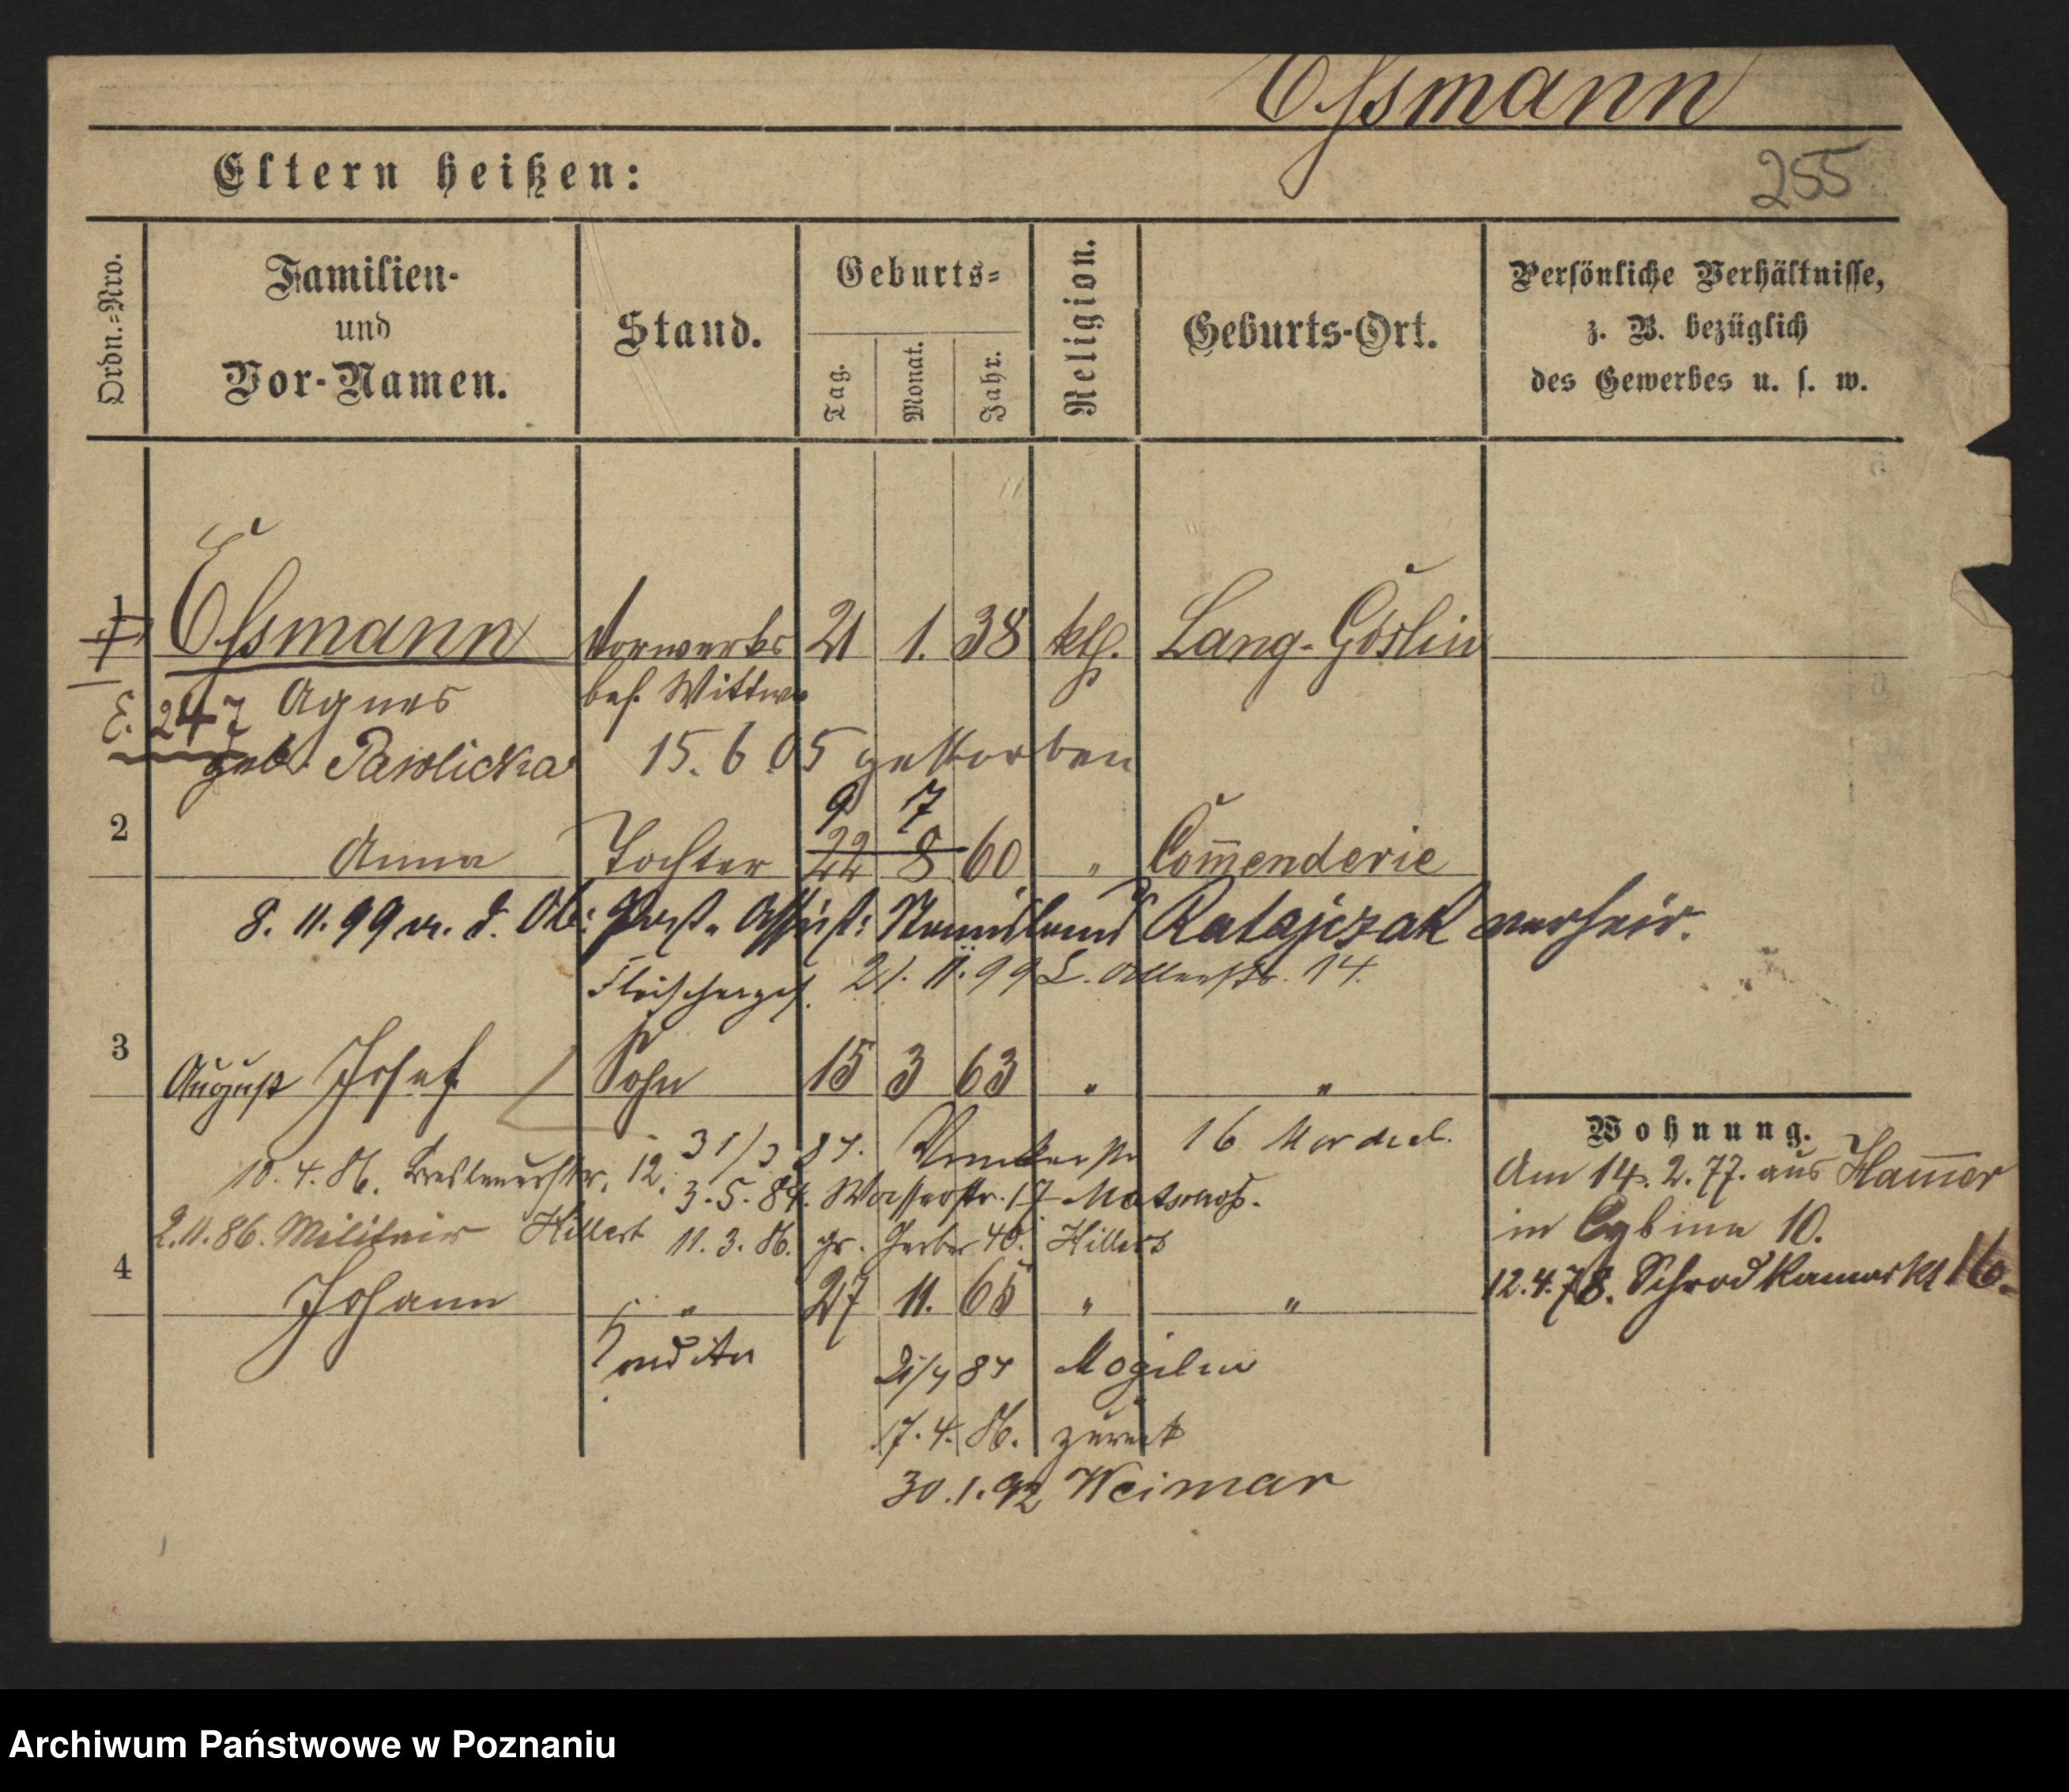 Essmann
255
Eltern heißen:
Ordn.=Nro.
Familien-
und
Vor-Namen.
Stand.
Geburts=
Tag.
Monat.
Jahr.
Religion.
Geburts-Ort.
Persönliche Verhältnisse,
z. B. bezüglich
des Gewerbes u. s. w.
1 Essmann Vorwerks 21 1. 38 kth. Lang-Goslin
E. 247 Agnes bes. Wittwe
geb. Pawlicka 15. 6. 05 gestorben
9 7
2 Anna Tochter 22 8 60 " Com̄enderie
8. 11. 99 m. d. Ob: Post. Assist: Stanislaus Ratajczak verheir.
Fleischerges. 21. 11. 99 14.
3 August Josef Sohn 15 3 63 " "
31/3 87. 16
10. 4. 86. Breslauerstr. 12. 3. 5. 84. Wasserstr. 17
2. 11. 86. Militair Hillert 11. 3. 86. gr. Gerber 40. Hillert
Wohnung.
Am 14. 2. 77. aus Ham̄er
in Cybina 10.
12. 4. 78. Schrodkamarkt 16.
4 Johann " 27 11. 65 " "
Conditor 87 Mogilno
17. 4. 86. zurück
30. 1. 92 Weimar
Archiwum Państwowe w Poznaniu